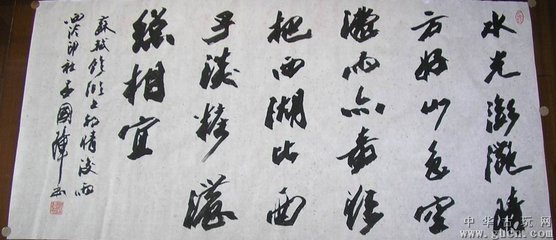 水光瀲灧晴
方好山色空
濛雨亦奇欲
把西湖比西
子淡粧濃
總相宜
蘇軾飲湖上初晴後雨
西泠印社 國
中华古玩网
www.gucn.com